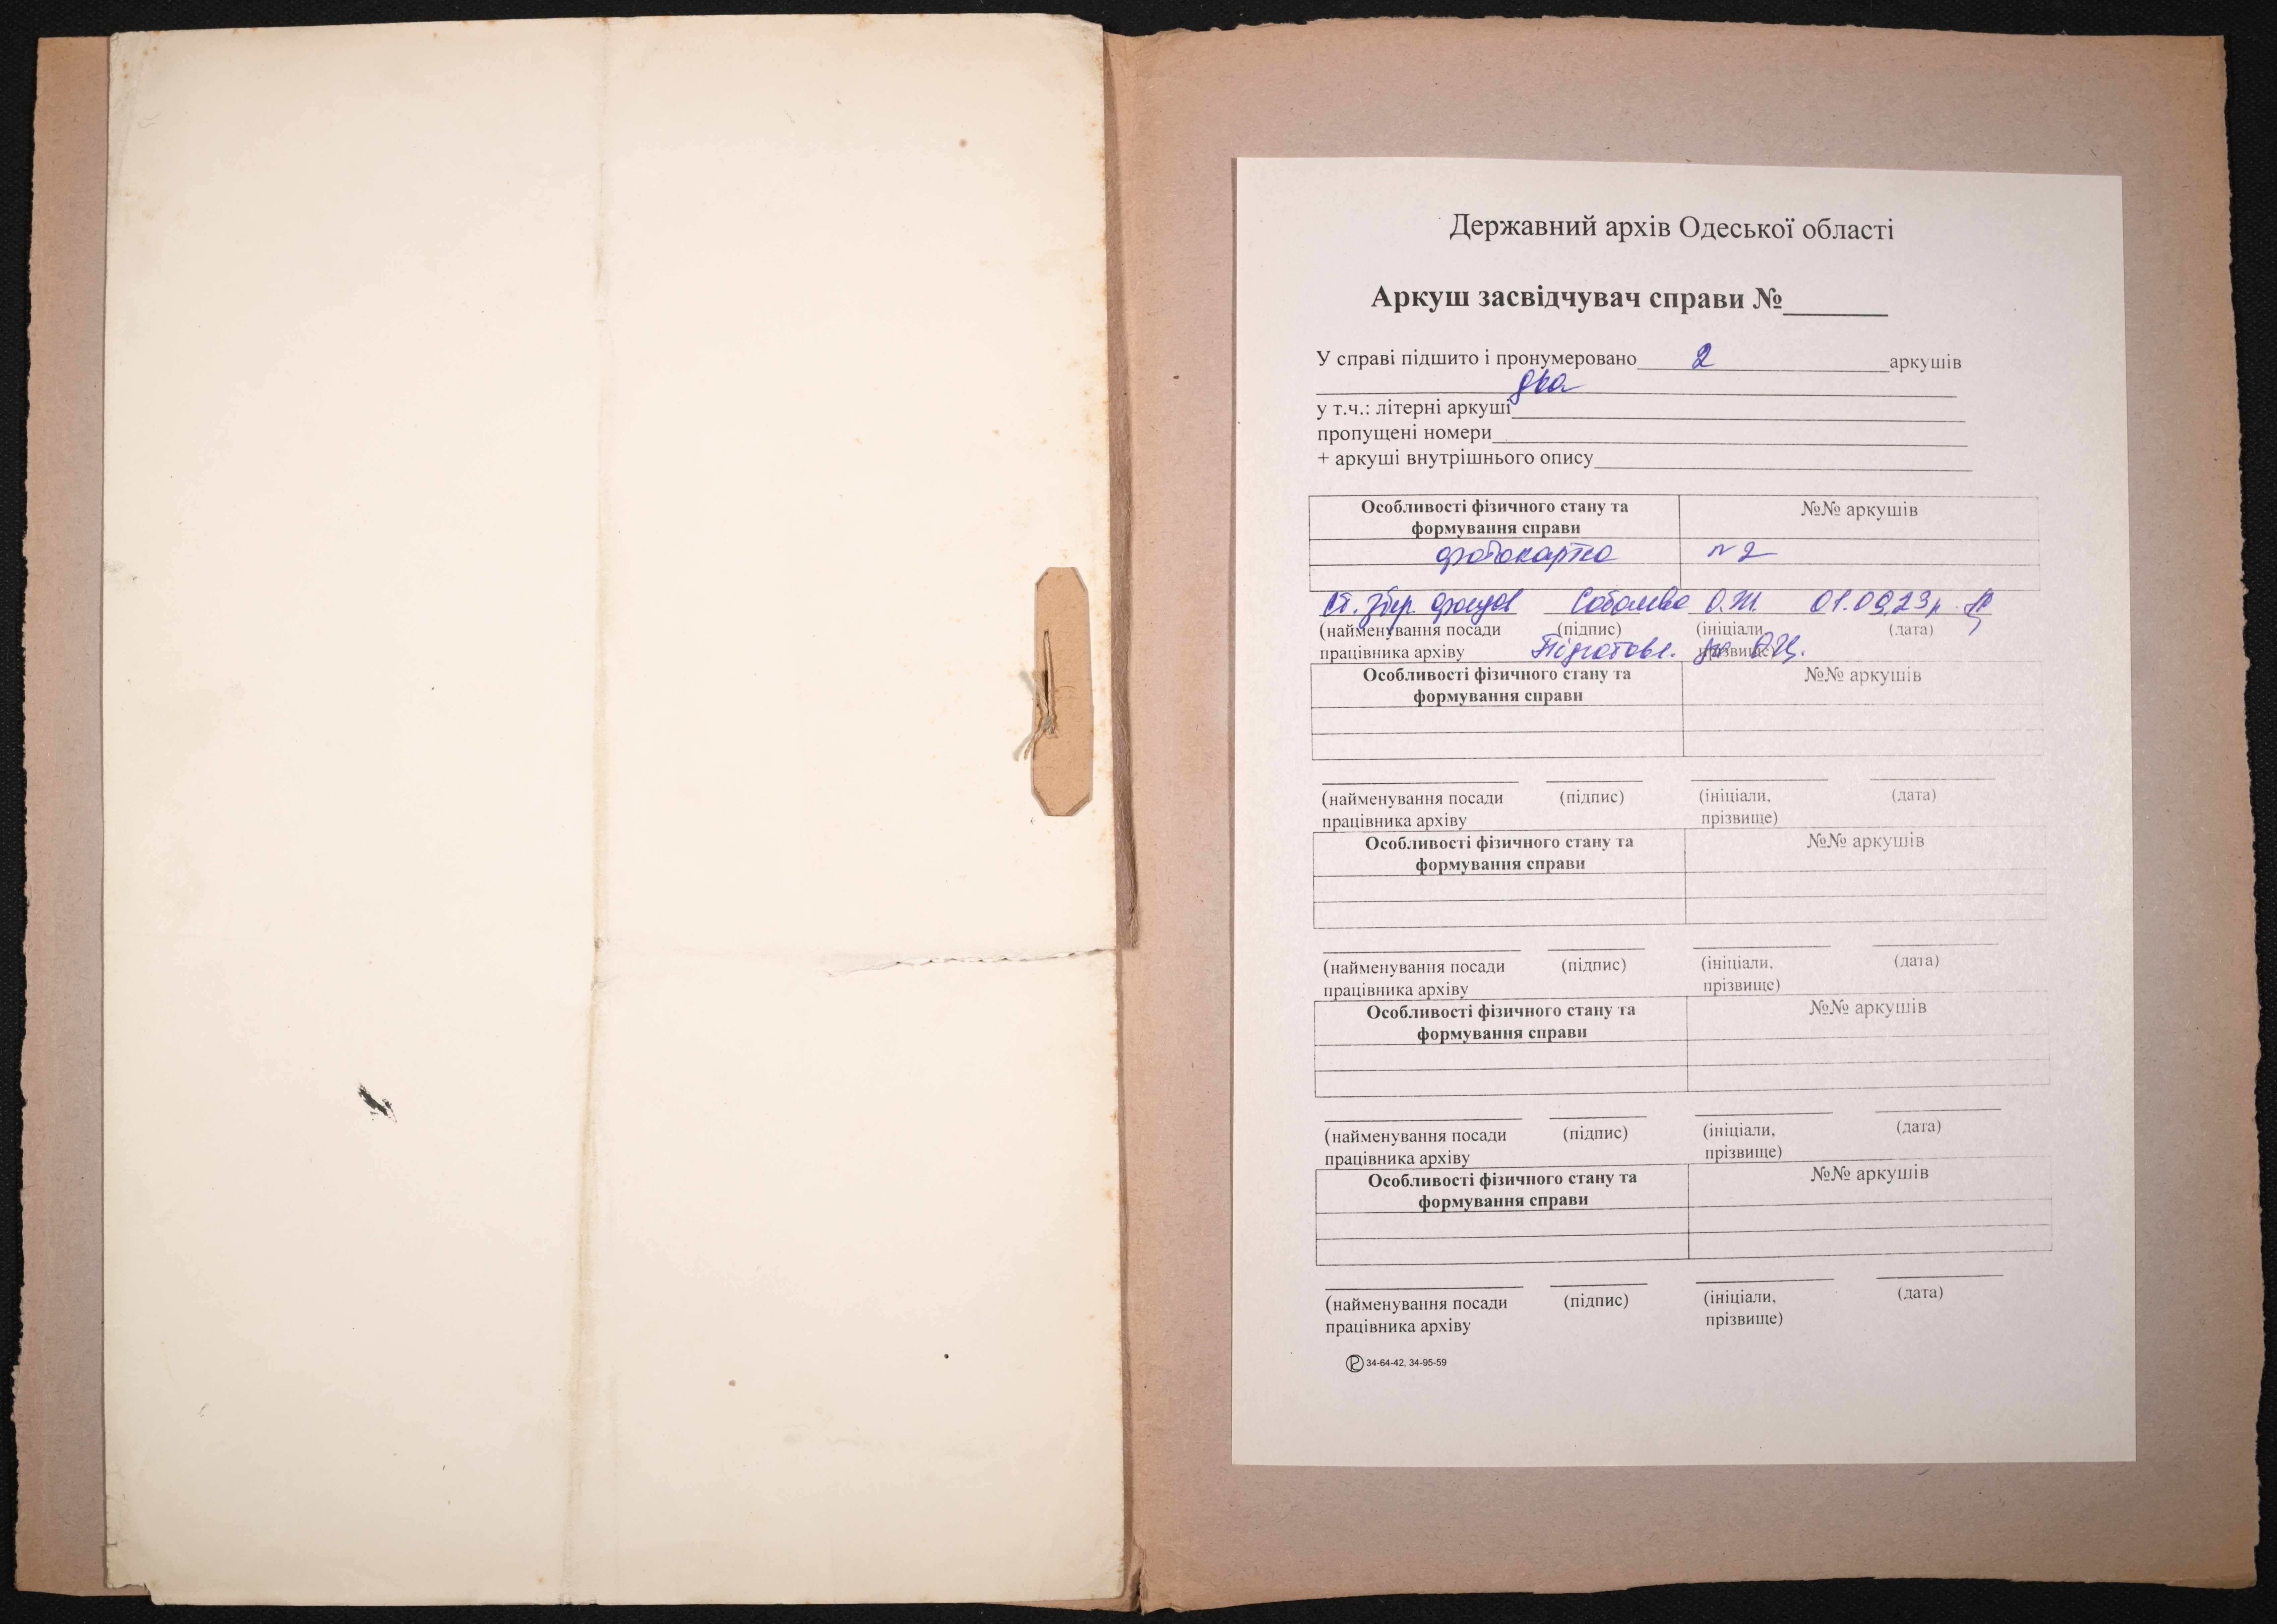 Державний архів Одеської області
Аркуш засвідчувач справи №
У справі підшито і пронумеровано 2 аркушів
два
у т.ч.: літерні аркуші
пропущені номери
+ аркуші внутрішнього опису
Особливості фізичного стану та №№ аркушів
формування справи
фотокартка №2
Ст. збер. фондів О.М. 01.09.23р.
(найменування посади (підпис) (ініціали, (дата)
працівника архіву прізвище)
Підготовл. до ОЦ.
Особливості фізичного стану та №№ аркушів
формування справи
(найменування посади (підпис) (ініціали, (дата)
працівника архіву прізвище)
Особливості фізичного стану та №№ аркушів
формування справи
(найменування посади (підпис) (ініціали, (дата)
працівника архіву прізвище)
Особливості фізичного стану та №№ аркушів
формування справи
(найменування посади (підпис) (ініціали, (дата)
працівника архіву прізвище)
Особливості фізичного стану та №№ аркушів
формування справи
(найменування посади (підпис) (ініціали, (дата)
працівника архіву прізвище)
34-64-42, 34-95-59